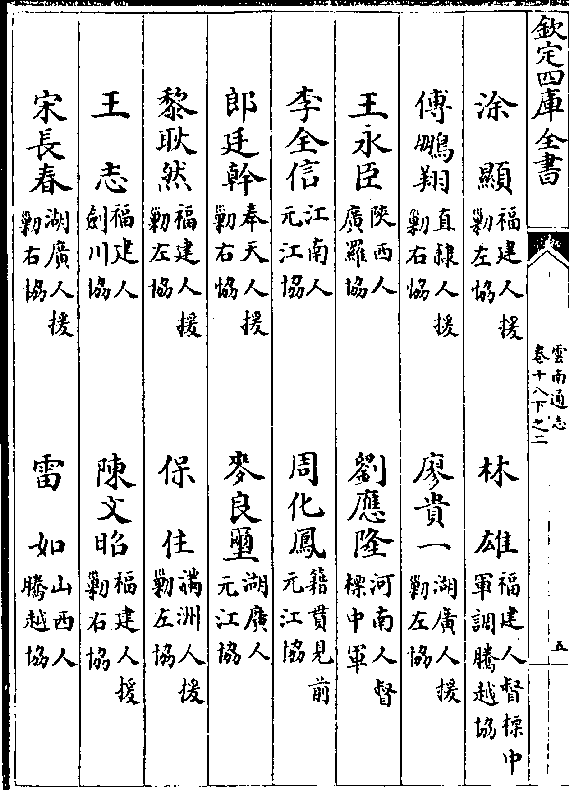 欽定四庫全書
雲南通志
卷十八下之二
五
涂顯福建人援勦左協
林雄福建人督標中軍調騰越協
傅鵬翔直隸人援勦右協
廖貴一湖廣人援勦左協
王永臣陝西人廣羅協
劉應隆河南人督標中軍
李全信江南人元江協
周化鳳籍貫見前元江協
郎廷幹奉天人援勦右協
麥良璽湖廣人元江協
黎耿然福建人援勦左協
保住滿洲人援勦左協
王志福建人劍川協
陳文昭福建人援勦右協
宋長春湖廣人援勦右協
雷如山西人騰越協